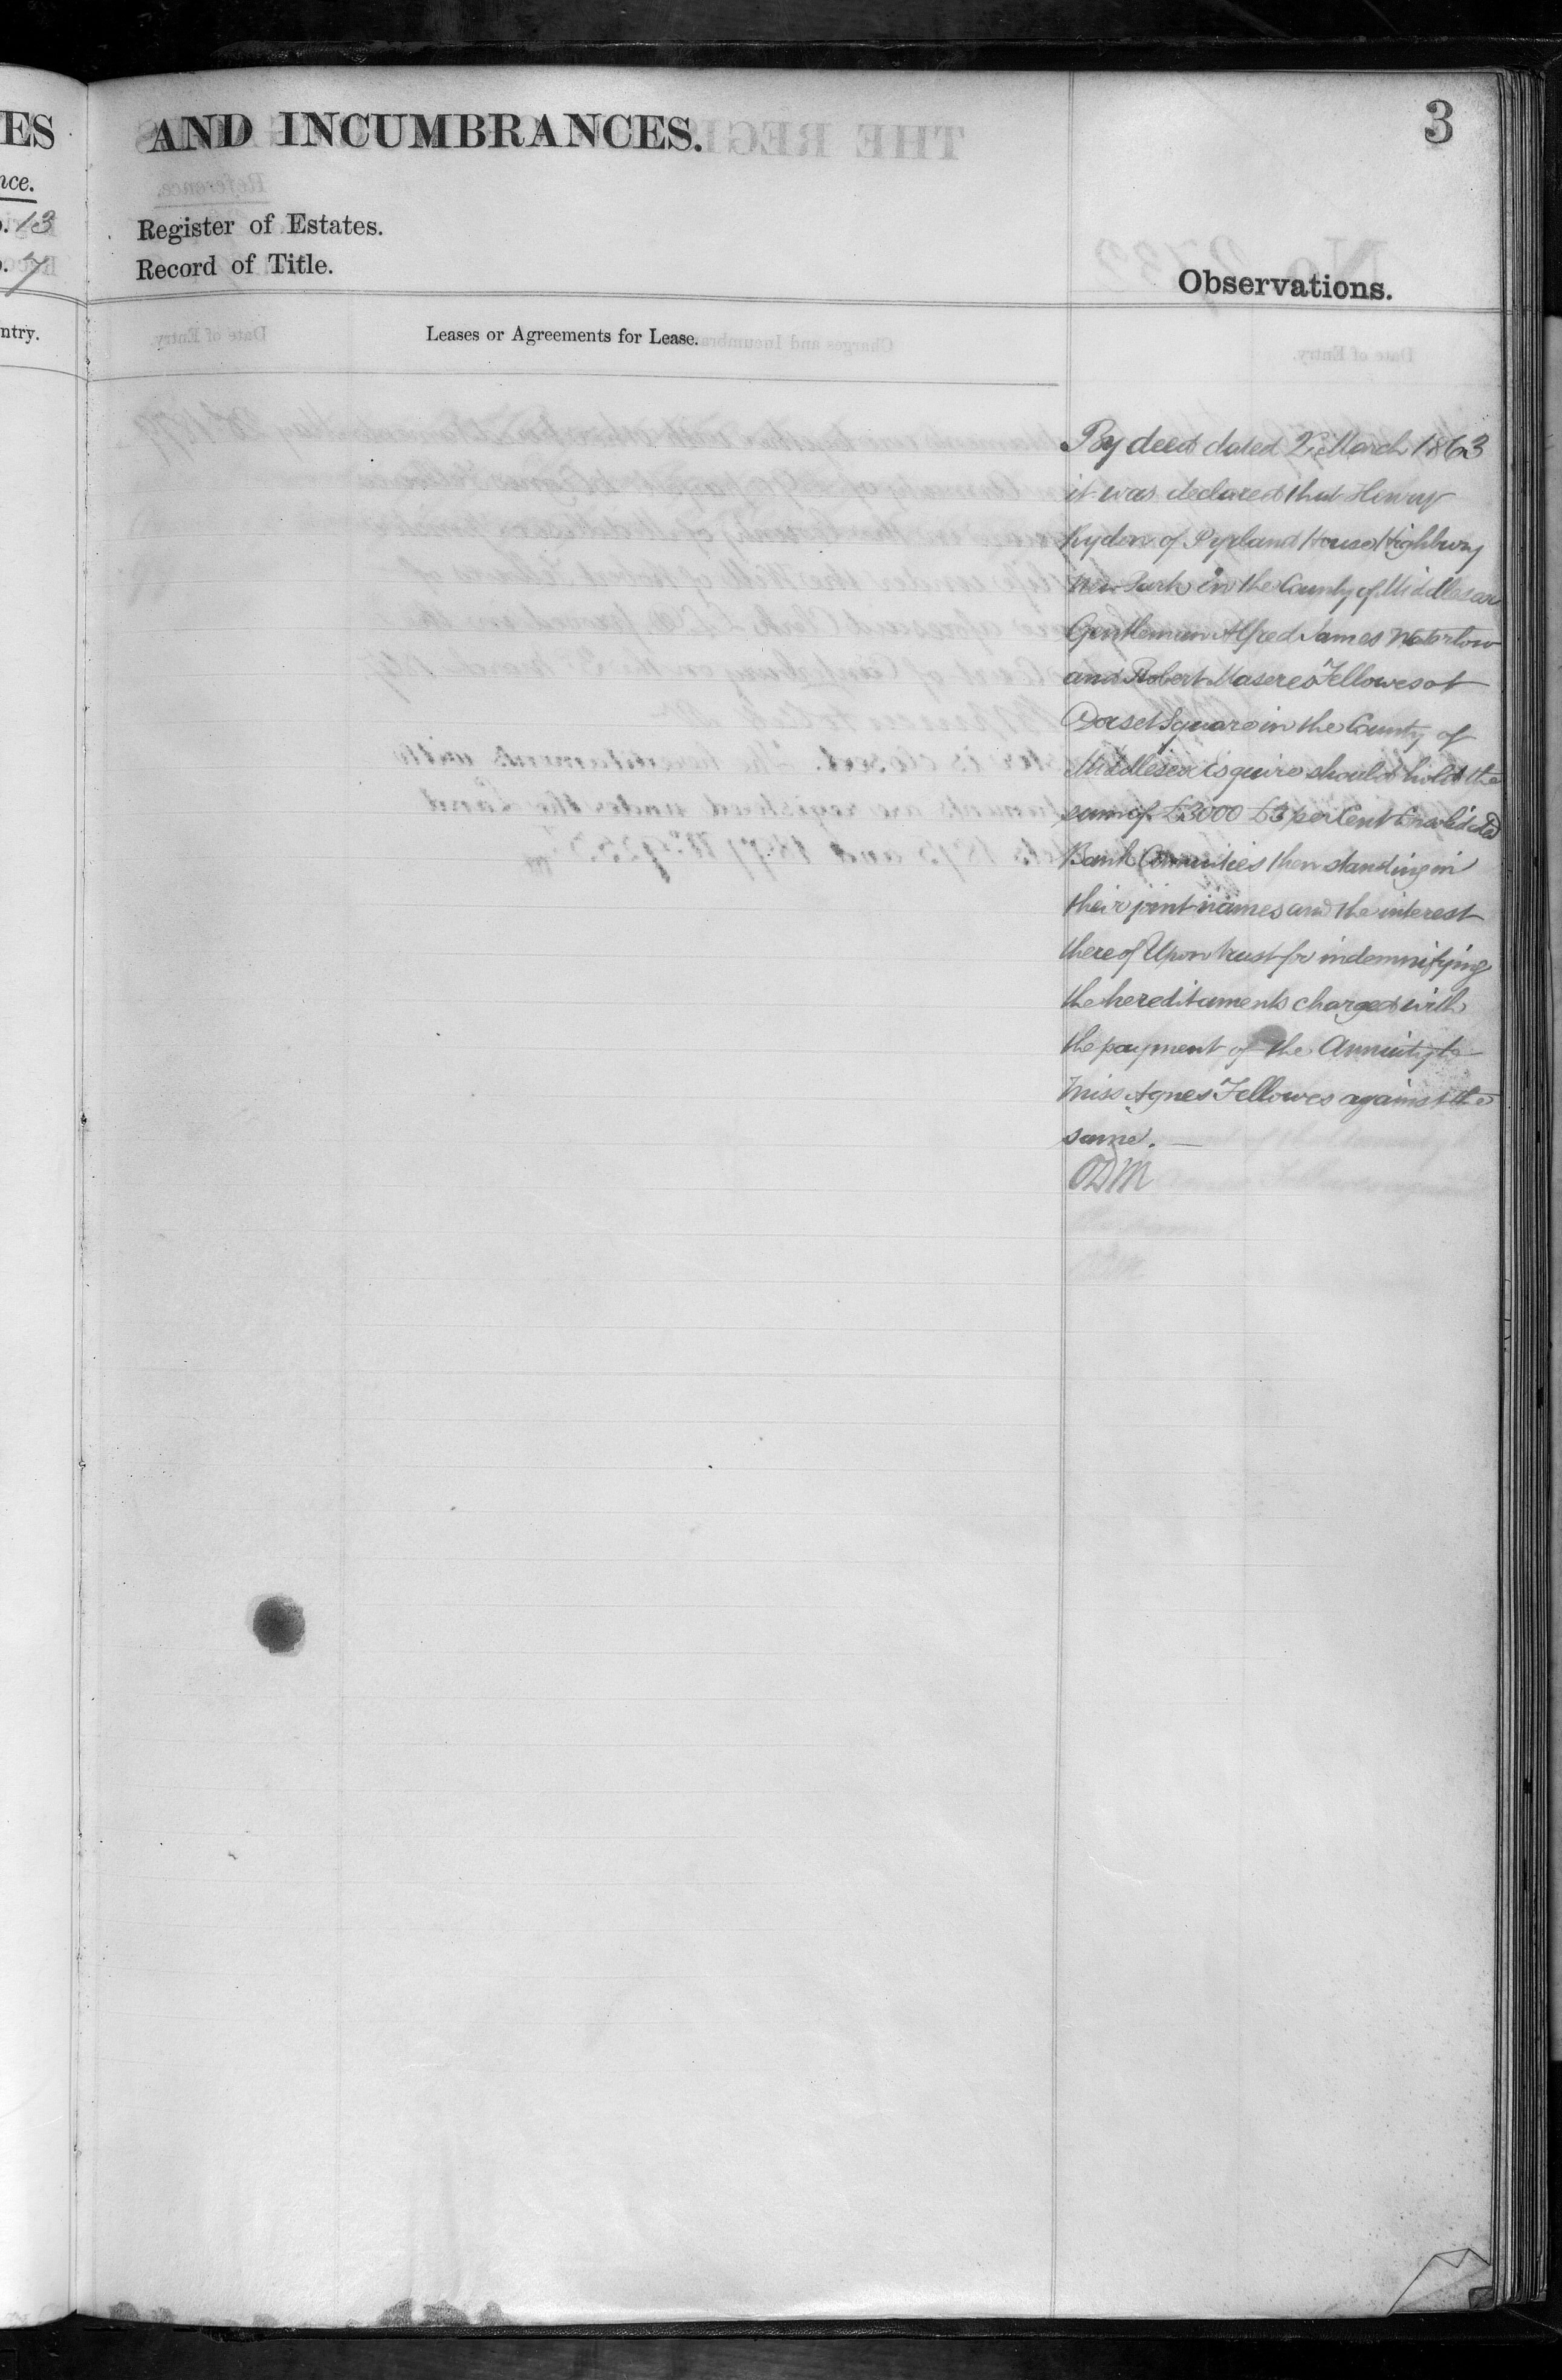 ES
nce.
o. 13
o. 7
ntry.
AND INCUMBRANCES.
3
Register of Estates.
Record of Title.
Observations.
Leases or Agreements for Lease.
By deed dated 2 March 1863
it was declared that Henry
Rydon of Pyrland House Highbury
New Park in the County of Middlesex
Gentleman Alfred James Waterlow
and Robert Maseres Fellowes of
Dorset Square in the County of
Middlesex Esquire should hold the
sum of £3000 £3 per Cent Consolidated
Bank Annuities then standing in
their joint names and the interest
thereof Upon trust for indemnifying
the hereditaments charged with
the payment of the Annuity to
Miss Agnes Fellowes against the
same. —
ODM